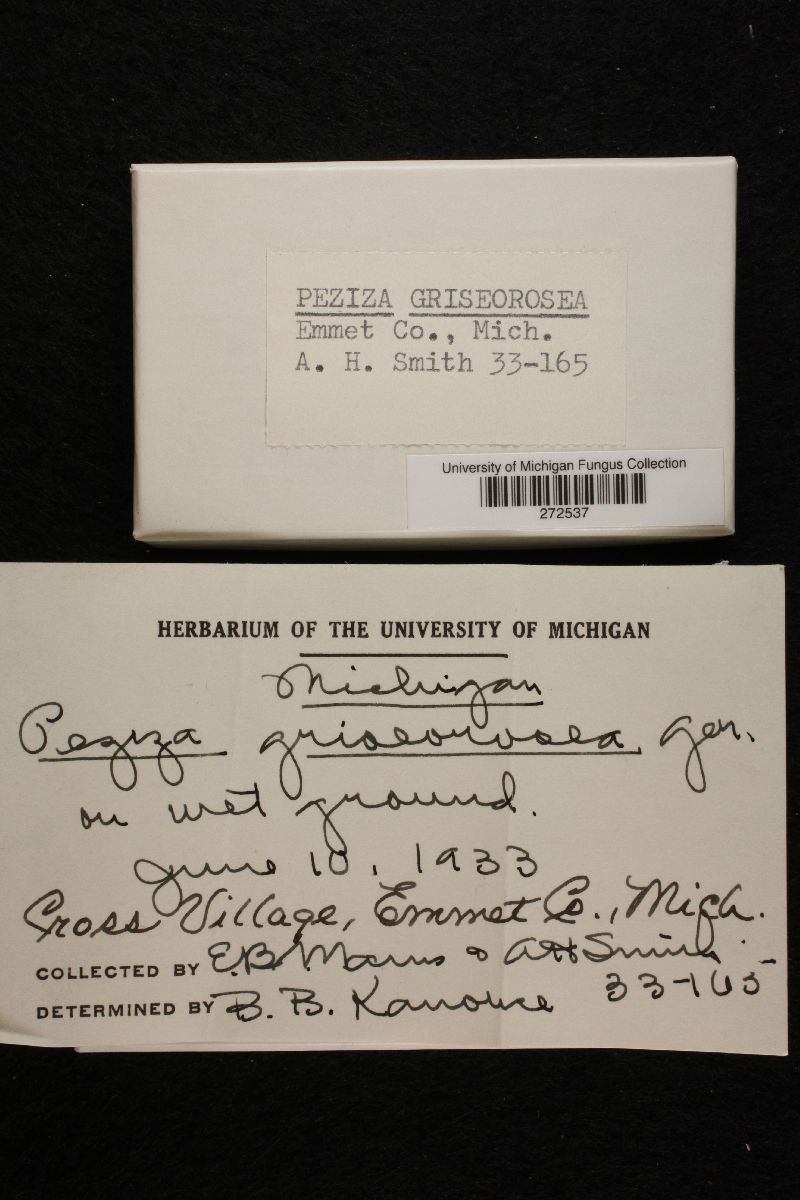 PEZIZA GRISEOROSEA
Emmet Co., Mich.
A. H. Smith 33-165
University of Michigan Fungus Collection
272537
HERBARIUM OF THE UNIVERSITY OF MICHIGAN
Michigan
Peziza griseorosea Ger.
on wet ground.
June 10, 1933
Cross Village, Emmet Co., Mich.
COLLECTED BY E.B. Mains & AH Smith
33-165
DETERMINED BY B. B. Kanouse